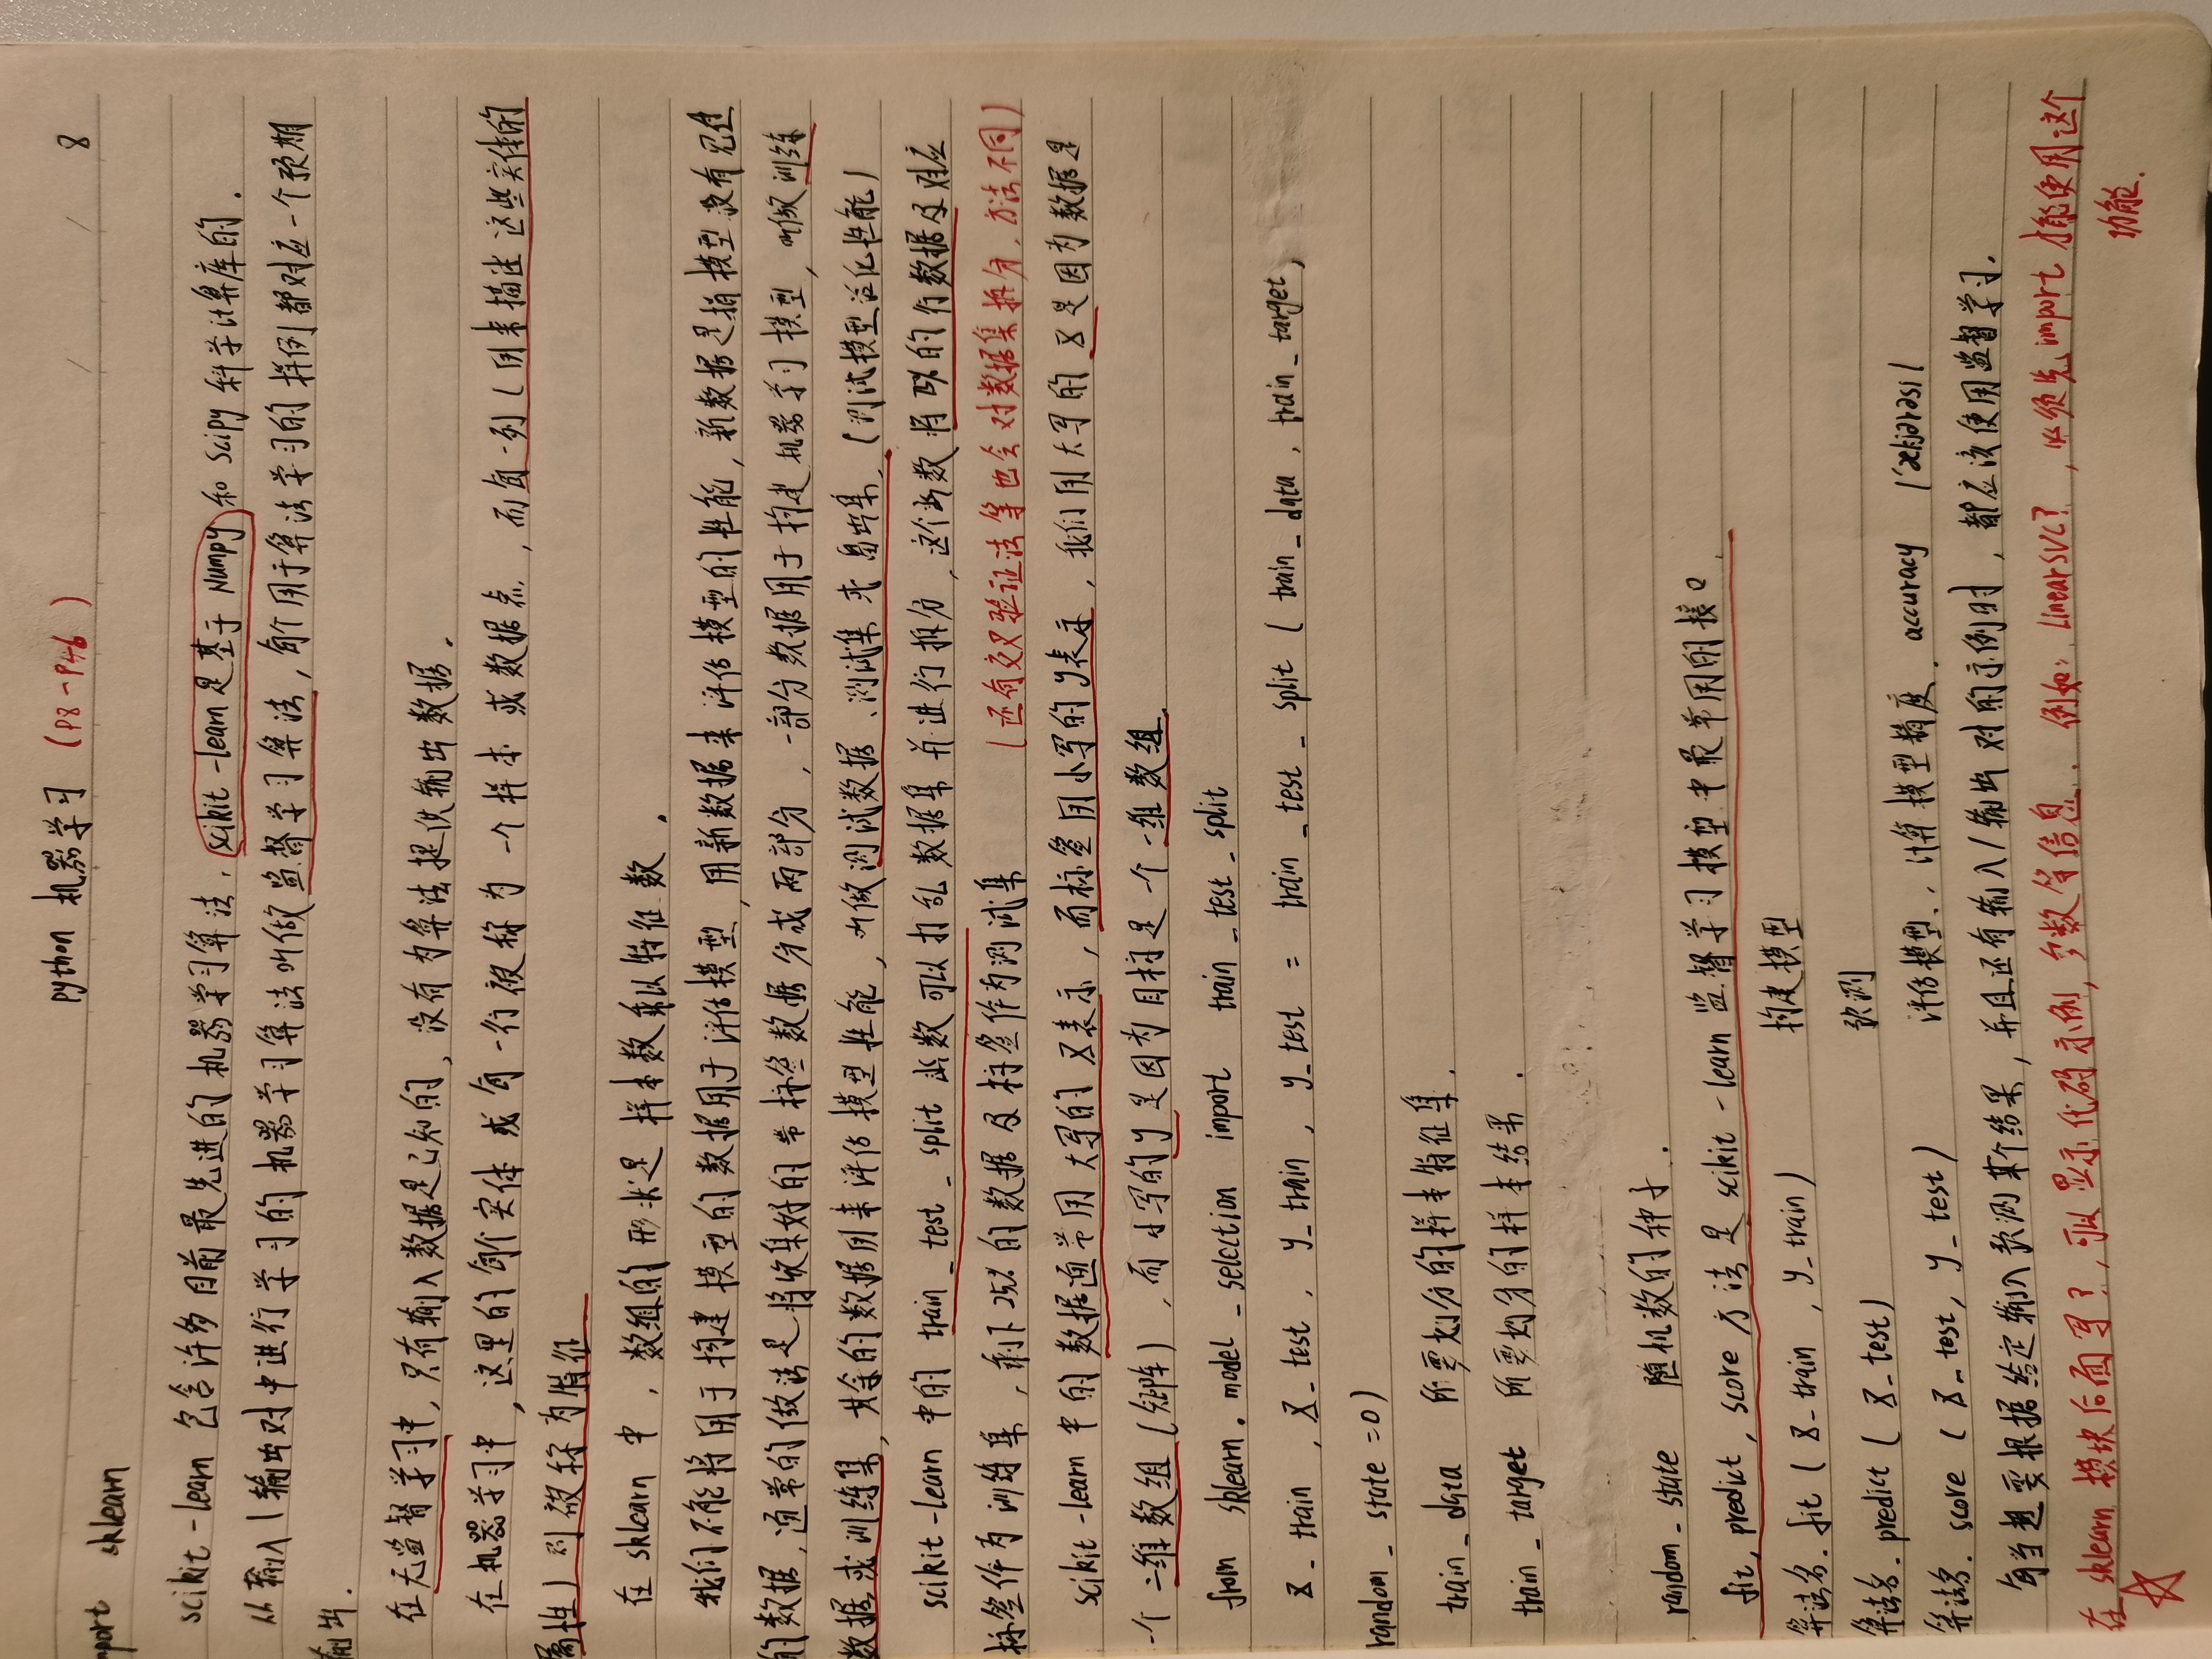 python 机器学习 (P8-P46) 8
mport sklearn
scikit-learn 包含许多目前最先进的机器学习算法，scikit-learn是基于Numpy和Scipy科学计算库的.
从输入/输出对中进行学习的机器学习算法叫做监督学习算法，每个用于算法学习的样例都对应一个预期
输出.
在无监督学习中，只有输入数据是已知的，没有为算法提供输出数据.
在机器学习中，这里的每个实体或每一行被称为一个样本或数据点，而每一列(用来描述这些实体的
属性)则被称为特征
在sklearn中，数组的形状是样本数乘以特征数.
我们不能将用于构建模型的数据用于评估模型，用新数据来评估模型的性能，新数据是指模型没有见过
的数据，通常的做法是将收集好的带标签数据分成两部分，一部分数据用于构建机器学习模型，叫做训练
数据或训练集，其余的数据用来评估模型性能，叫做测试数据、测试集或留出集.(测试模型泛化性能)
scikit-learn中的train_test_split函数可以打乱数据集并进行拆分，这个函数将75%的行数据及对应
标签作为训练集，剩下25%的数据及标签作为测试集 (还有交叉验证法等也会对数据集拆分，方法不同)
scikit-learn中的数据通常用大写的X表示，而标签用小写的y表示，我们用大写的X是因为数据是
一个二维数组(矩阵)，而小写的y是因为目标是一个一维数组.
from sklearn.model_selection import train_test_split
X_train, X_test, y_train, y_test = train_test_split(train_data, train_target,
random_state=0)
train_data 所要划分的样本特征集.
train_target 所要划分的样本结果.
random_state 随机数的种子.
fit, predict, score方法是scikit-learn监督学习模型中最常用的接口.
算法名.fit(X-train, y_train) 构建模型
算法名.predict(X_test) 预测
算法名.score(X_test, y_test) 评估模型、计算模型精度. accuracy /'ækjərəsi/
每当想要根据给定输入预测某个结果，并且还有输入/输出对的示例时，都应该使用监督学习.
在sklearn模块后面写?，可以显示代码示例，参数等信息. 例如: LinearSVC?，必须先import才能使用这个
功能.